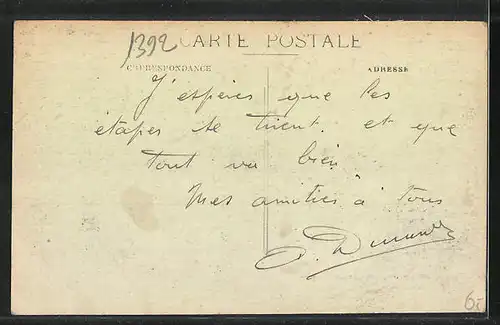 1392
CARTE POSTALE
CORRESPONDANCE
ADRESSE
J'espères que les
étapes se tient. et que
tout va bien
Mes amitiés à tous